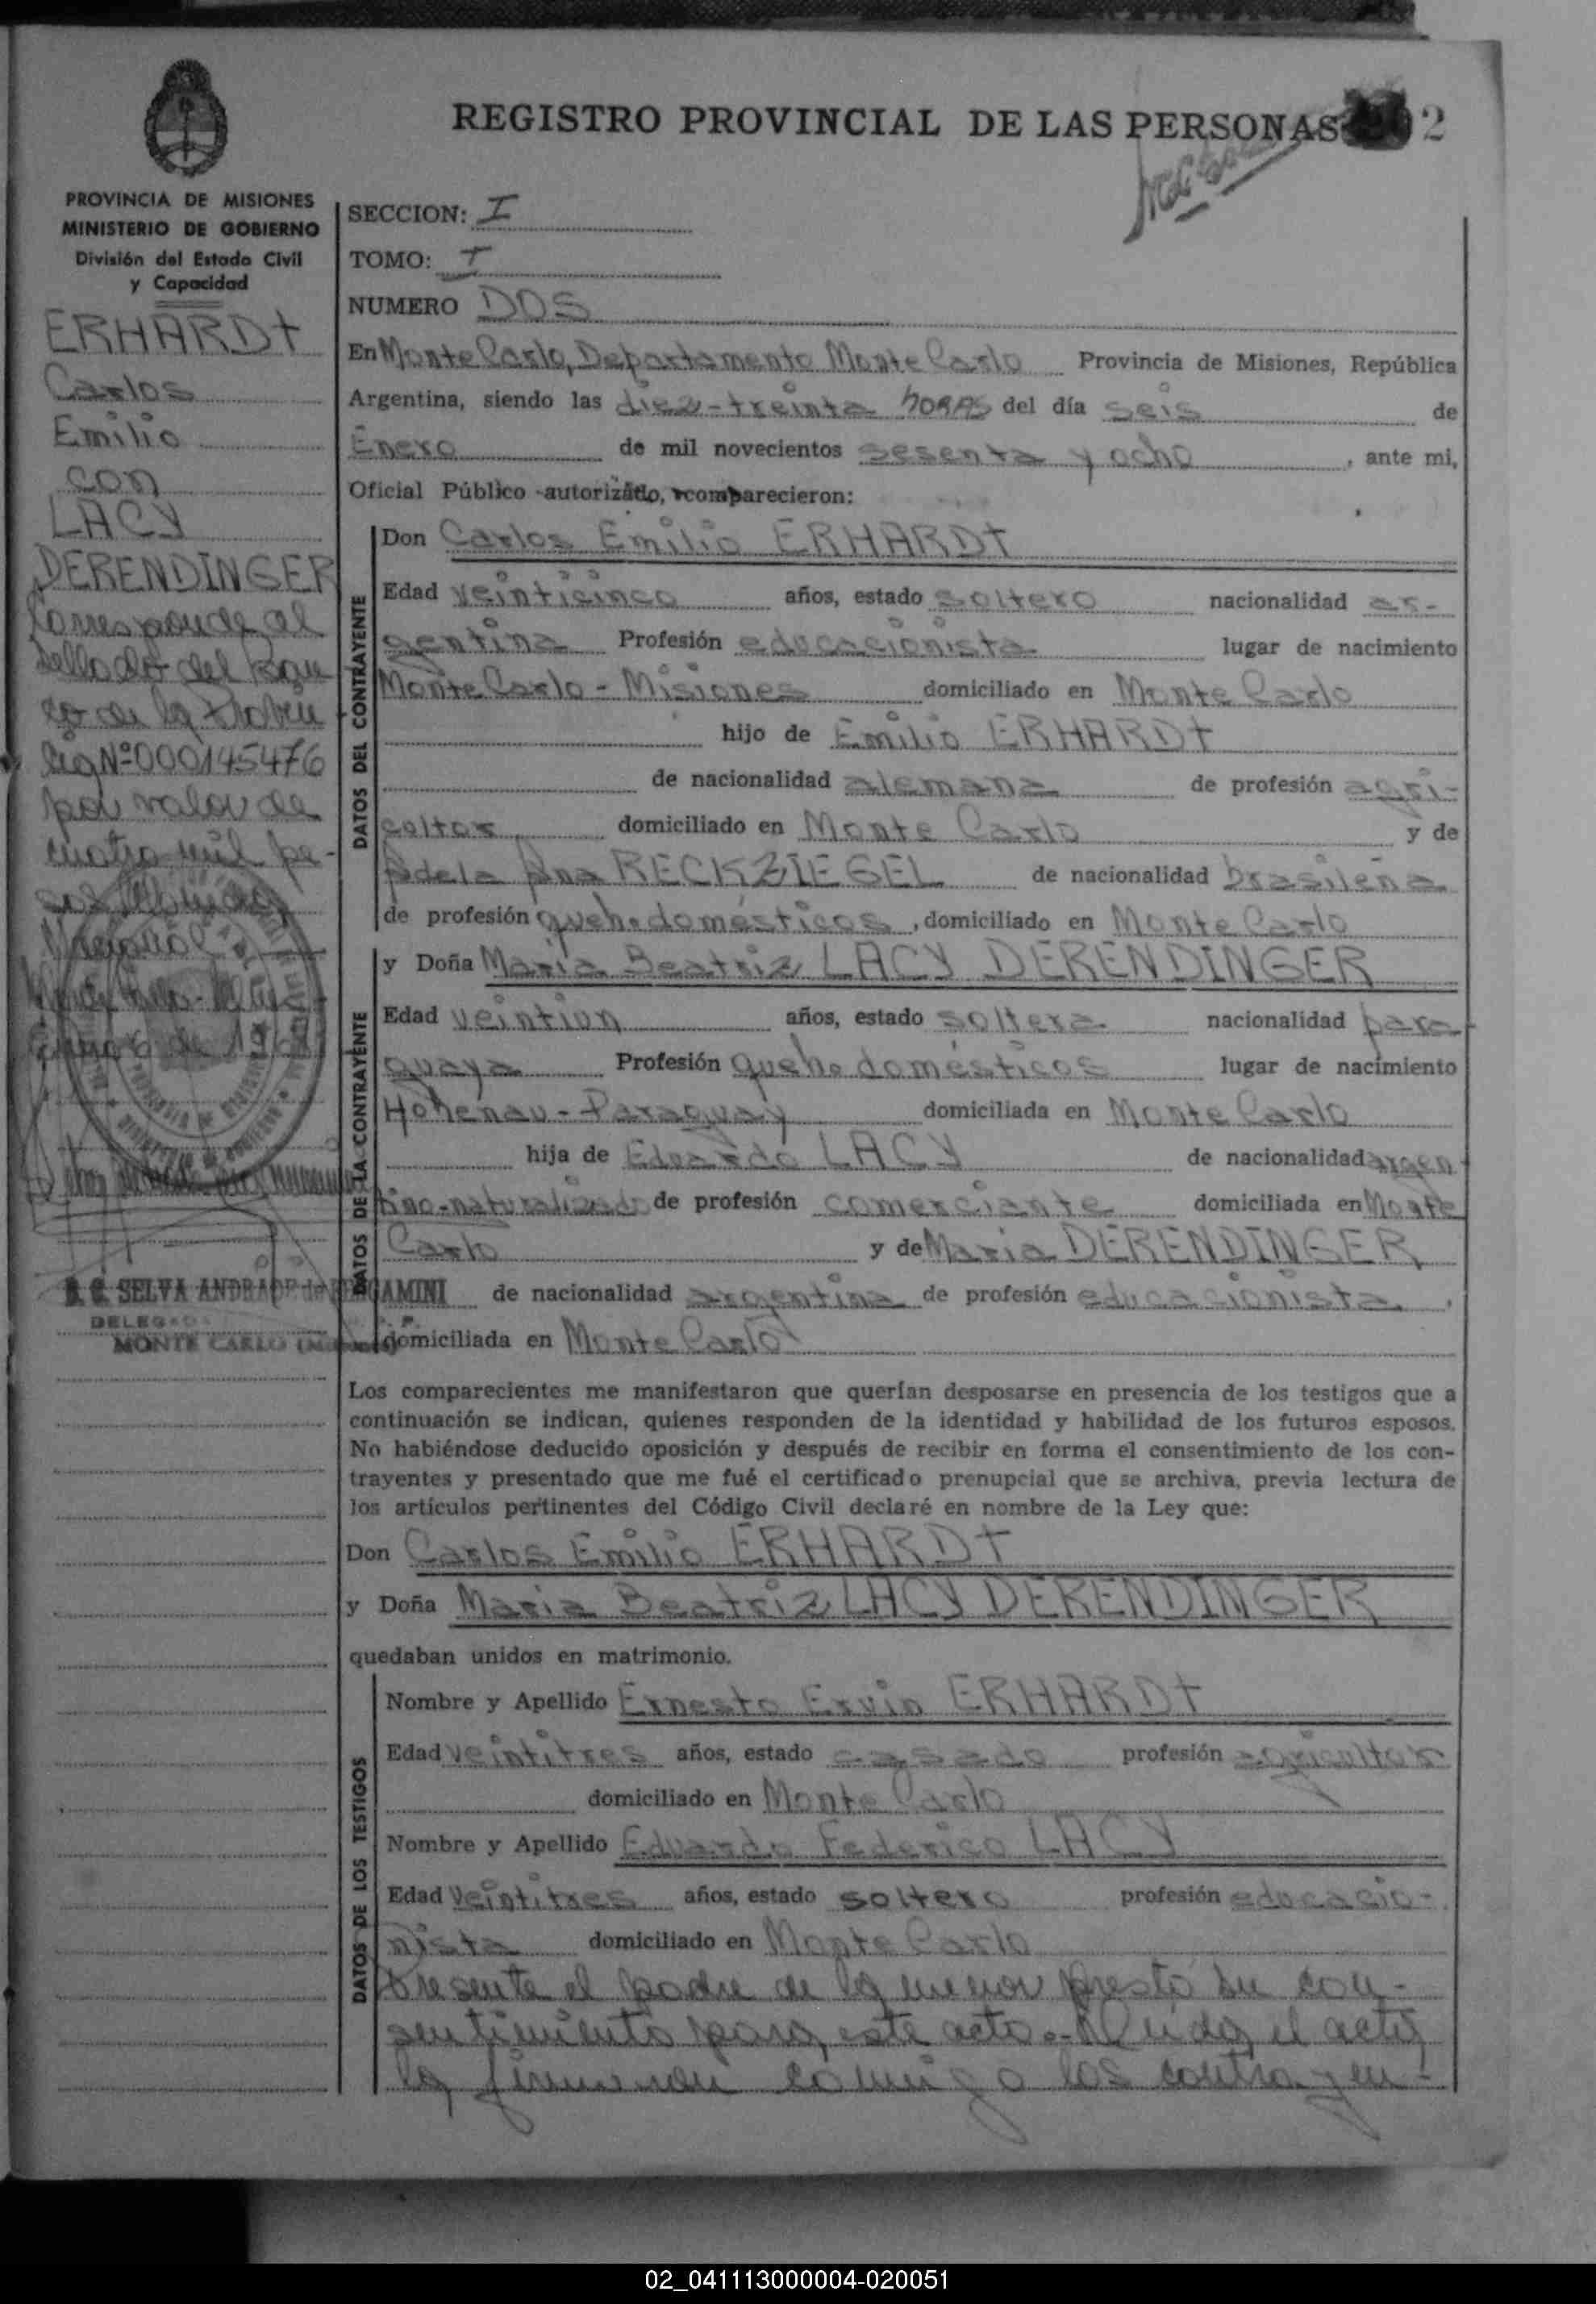 REGISTRO PROVINCIAL DE LAS PERSONAS 2
PROVINCIA DE MISIONES
MINISTERIO DE GOBIERNO
División del Estado Civil
y Capacidad
ERHARDt
Carlos
Emilio
con
LACY
DERENDINGER
Corresponde al
sellado del Ban
co de la Provin
cia Nº 000145476
por valor de
cuatro mil pe-
sos
Nacional
Enero 6 de 1968
S. C. SELVA ANDRADE de BERGAMINI
DELEGADA
MONTE CARLO
SECCION: I
TOMO: I
NUMERO DOS
En Monte Carlo, Departamento Monte Carlo Provincia de Misiones, República
Argentina, siendo las diez-treinta horas del día seis de
Enero de mil novecientos sesenta y ocho, ante mi,
Oficial Público autorizado, comparecieron:
DATOS DEL CONTRAYENTE
Don Carlos Emilio ERHARDt
Edad veinticinco años, estado soltero nacionalidad ar-
gentina Profesión educacionista lugar de nacimiento
Monte Carlo - Misiones domiciliado en Monte Carlo
hijo de Emilio ERHARDt
de nacionalidad alemana de profesión agri-
cultor domiciliado en Monte Carlo y de
Adela Ana RECKZIEGEL de nacionalidad brasileña
de profesión queh. domésticos, domiciliado en Monte Carlo
DATOS DE LA CONTRAYENTE
y Doña Maria Beatriz LACY DERENDINGER
Edad veintiun años, estado soltera nacionalidad para-
guaya Profesión queh. domésticos lugar de nacimiento
Hohenau - Paraguay domiciliada en Monte Carlo
hija de Eduardo LACY de nacionalidad argen-
tino-naturalizado de profesión comerciante domiciliada en Monte
Carlo y de Maria DERENDINGER
de nacionalidad argentina de profesión educacionista,
domiciliada en Monte Carlo
Los comparecientes me manifestaron que querían desposarse en presencia de los testigos que a
continuación se indican, quienes responden de la identidad y habilidad de los futuros esposos.
No habiéndose deducido oposición y después de recibir en forma el consentimiento de los con-
trayentes y presentado que me fué el certificado prenupcial que se archiva, previa lectura de
los artículos pertinentes del Código Civil declaré en nombre de la Ley que:
Don Carlos Emilio ERHARDt
y Doña Maria Beatriz LACY DERENDINGER
quedaban unidos en matrimonio.
DATOS DE LOS TESTIGOS
Nombre y Apellido Ernesto Ervin ERHARDt
Edad veintitres años, estado casado profesión agricultor
domiciliado en Monte Carlo
Nombre y Apellido Eduardo Federico LACY
Edad veintitres años, estado soltero profesión educacio-
nista domiciliado en Monte Carlo
Presente el padre de la menor prestó su con-
sentimiento para este acto.- Leída el acta
la firmaron conmigo los contrayen-
02_041113000004-020051